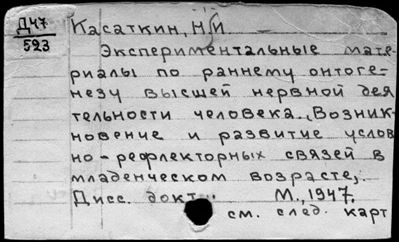 Д47
523
Касаткин, Н.И.
Экспериментальные мате-
риалы по раннему онтоге-
незу высшей нервной дея
тельности человека. Возник-
новение и развитие услов
но-рефлекторных связей в
младенческом возрасте,
Дисс. докт. М., 1947.
см. след. карт